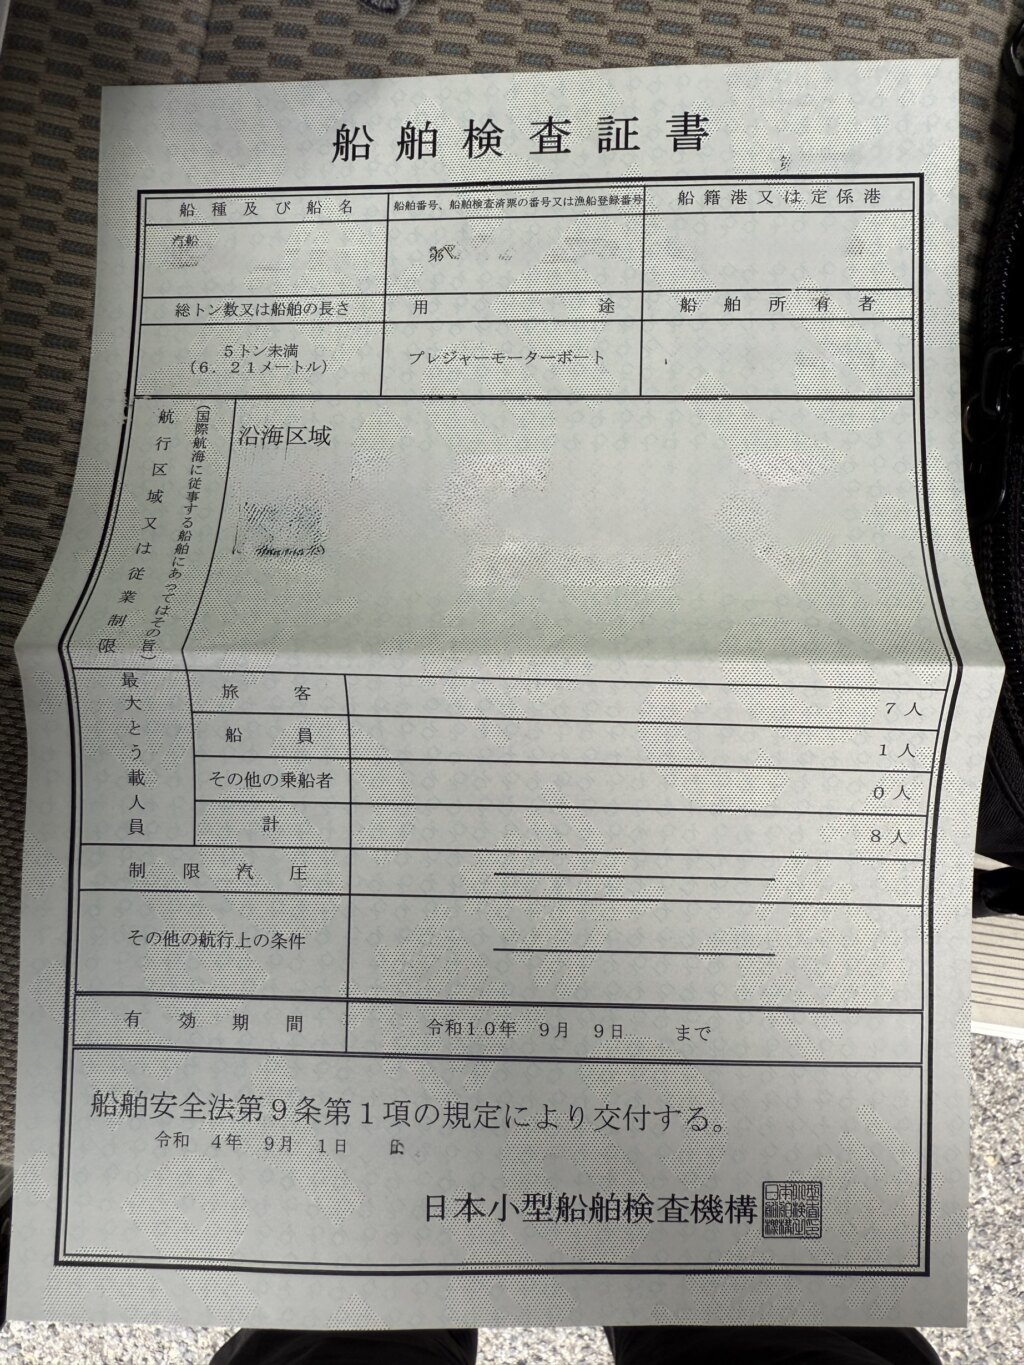 船舶検査証書
船種及び船名
船舶番号、船舶検査済票の番号又は漁船登録番号
船籍港又は定係港
汽船
第
総トン数又は船舶の長さ
用途
船舶所有者
5トン未満
(6.21メートル)
プレジャーモーターボート
航行区域又は従業制限
(国際航海に従事する船舶にあってはその旨)
沿海区域
最大とう載人員
旅客
7人
船員
1人
その他の乗船者
0人
計
8人
制限汽圧
その他の航行上の条件
有効期間
令和10年 9月 9日 まで
船舶安全法第9条第1項の規定により交付する。
令和 4年 9月 1日
日本小型船舶検査機構